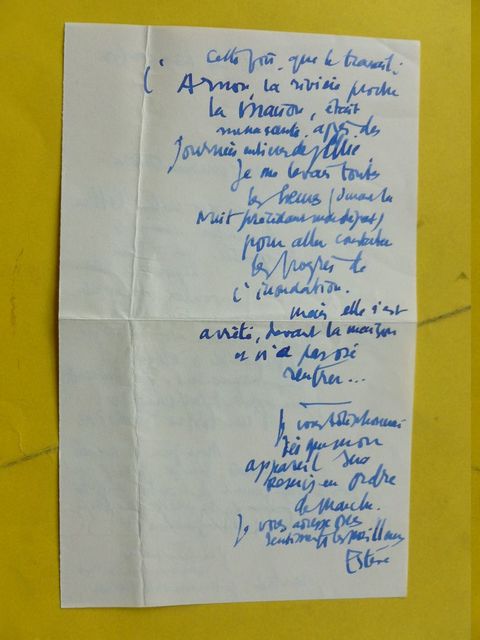 cette fois, que le travail :
l'Arnon, la rivière proche
la maison, était
menaçante, après des
journées entières de pluie.
Je me levais toutes
les heures (durant la
nuit précédant mon départ)
pour aller constater
les progrès de
l'inondation.
mais elle s'est
arrêtée, devant la maison
et n'a pas osé
rentrer...
Je vous téléphonerai
dès que mon
appareil sera
remis en ordre
de marche.
Je vous adresse mes
sentiments les meilleurs
Estève